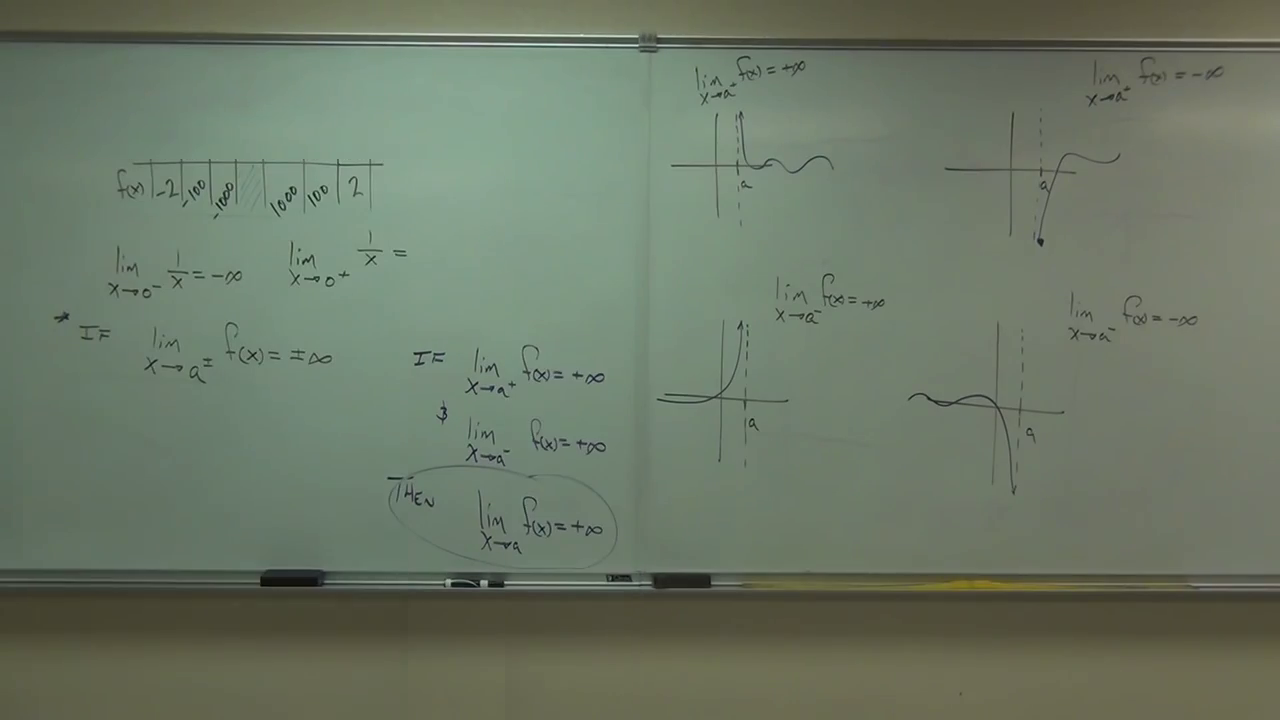 f(x) -2 -100 -1000 1000 100 2
lim x→0⁻ 1/x = -∞
lim x→0⁺ 1/x =
* IF lim x→a± f(x) = ±∞
IF lim x→a⁺ f(x) = +∞
& lim x→a⁻ f(x) = +∞
THEN lim x→a f(x) = +∞
lim x→a⁺ f(x) = +∞
a
lim x→a⁺ f(x) = -∞
a
lim x→a⁻ f(x) = +∞
a
lim x→a⁻ f(x) = -∞
a